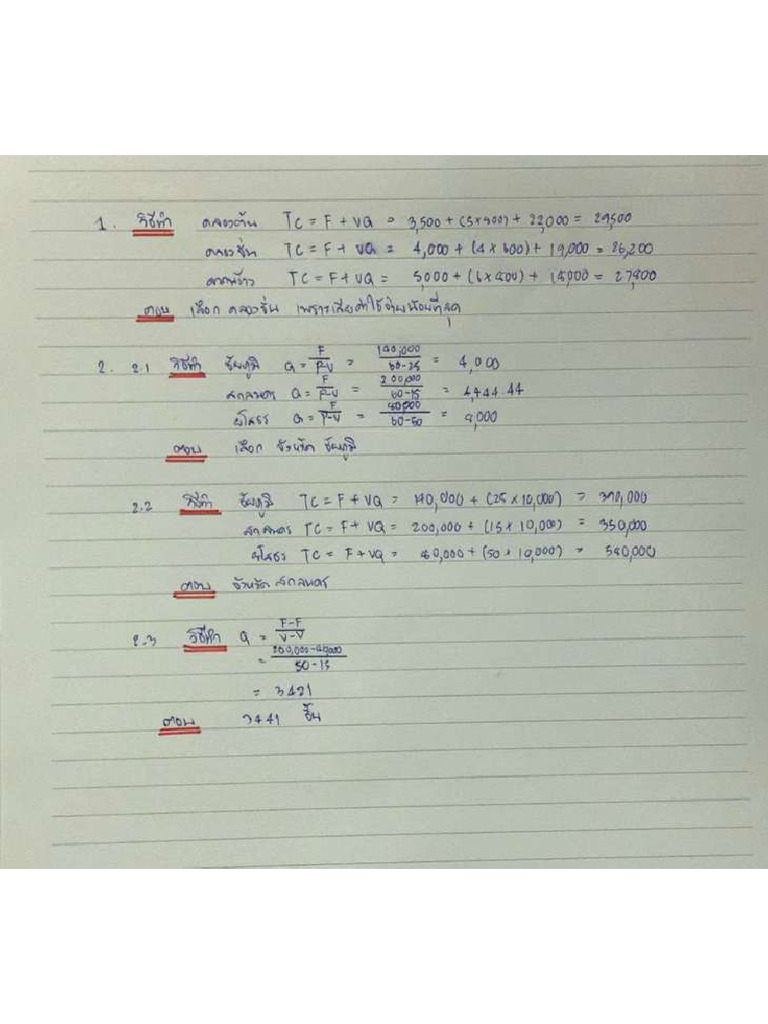 1. วิธีทำ คลองตัน TC = F + VQ = 3,500 + (5 x 800) + 22,000 = 29,500
คลองชั่น TC = F + VQ = 4,000 + (4 x 800) + 19,000 = 26,200
ลาดพร้าว TC = F + VQ = 5,000 + (6 x 800) + 18,000 = 27,800
ตอบ เลือก คลองชั่น เพราะเสียค่าใช้จ่ายน้อยที่สุด
2. 2.1 วิธีทำ ชัยภูมิ Q = F/P-V = 140,000/60-25 = 4,000
สกลนคร Q = F/P-V = 200,000/60-15 = 4,444.44
ยโสธร Q = F/P-V = 40,000/60-50 = 4,000
ตอบ เลือก จังหวัด ชัยภูมิ
2.2 วิธีทำ ชัยภูมิ TC = F + VQ = 140,000 + (25 x 10,000) = 390,000
สกลนคร TC = F + VQ = 200,000 + (15 x 10,000) = 350,000
ยโสธร TC = F + VQ = 40,000 + (50 x 10,000) = 540,000
ตอบ จังหวัด สกลนคร
2.3 วิธีทำ Q = F-F/V-V
= 200,000-40,000/50-15
= 3421
ตอบ 3441 ชิ้น